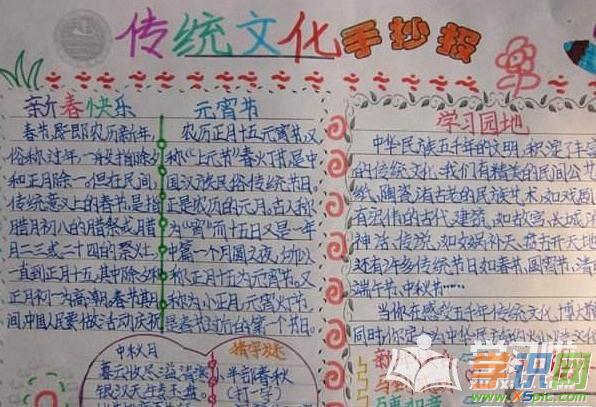 传统文化手抄报
新春快乐
春节即农历新年,
俗称过年,一般指除夕
和正月除一。但在民间,
传统意义上的春节是指
腊月初八的腊祭或腊
月二三或二十四的祭灶,
一直到正月十五,其中除夕和
正月初一为高潮。春节期
间,中国人民要做活动庆祝
元宵节
农历正月十五元宵节,又
称“上元节”春灯节,是中
国汉族民俗传统节日。
正是农历的元月,古人称
为“宵”而十五日又是一年
中第一个圆之夜,
称正月十五为元宵节。又
称为小正月,元宵灯节
是春节过后的第一个节日。
学习园地
中华民族五千年的文明,积淀了丰
的传统文化。我们有精美的民间
纸、陶瓷;有古老的民族艺术,如戏
有宏伟的古代建筑,如故宫、长城
神话、传说,如女娲补天、盘古开天地
还有许多传统节日如春节、圆宵节、清
端午节、中秋节……
当你在感叹五千年传统文化博大
同时
中秋月
暮云收尽溢清寒
银汉无声转玉盘
猜字谜
半部春秋
(打一字)
学识网
x5pic.com